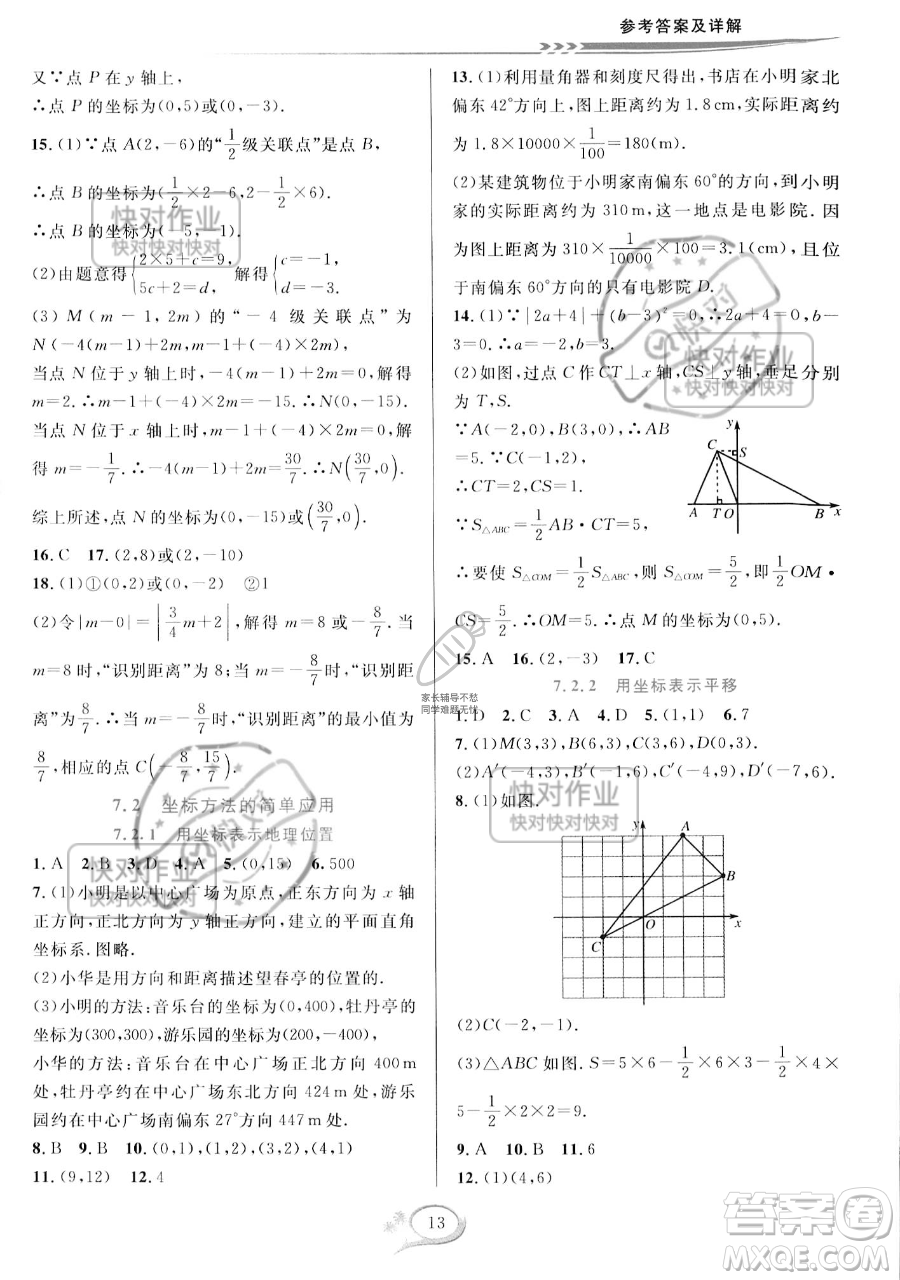 参考答案及详解
又∵点 P 在 y 轴上,
∴点 P 的坐标为(0,5)或(0,-3).
15.(1)∵点 A(2,-6)的“1/2级关联点”是点 B,
∴点 B 的坐标为(1/2×2-6,2-1/2×6).
∴点 B 的坐标为(-5,-1).
(2)由题意得{2×5+c=9, 5c+2=d, 解得{c=-1, d=-3.
(3) M(m-1,2m)的“-4 级关联点”为
N(-4(m-1)+2m,m-1+(-4)×2m),
当点 N 位于 y 轴上时,-4(m-1)+2m=0,解得
m=2.∴m-1+(-4)×2m=-15.∴N(0,-15).
当点 N 位于 x 轴上时,m-1+(-4)×2m=0,解
得 m=-1/7.∴-4(m-1)+2m=30/7.∴N(30/7,0).
综上所述,点 N 的坐标为(0,-15)或(30/7,0).
16.C 17.(2,8)或(2,-10)
18.(1)①(0,2)或(0,-2) ②1
(2)令|m-0|=|3/4m+2|,解得 m=8 或-8/7.当
m=8 时,“识别距离”为 8;当 m=-8/7时,“识别距
离”为8/7.∴当 m=-8/7时,“识别距离”的最小值为
8/7,相应的点 C(-8/7,15/7).
7.2 坐标方法的简单应用
7.2.1 用坐标表示地理位置
1.A 2.B 3.D 4.A 5.(0,15) 6.500
7.(1)小明是以中心广场为原点,正东方向为 x 轴
正方向,正北方向为 y 轴正方向,建立的平面直角
坐标系.图略.
(2)小华是用方向和距离描述望春亭的位置的.
(3)小明的方法:音乐台的坐标为(0,400),牡丹亭
的坐标为(300,300),游乐园的坐标为(200,-400),
小华的方法:音乐台在中心广场正北方向 400 m
处,牡丹亭约在中心广场东北方向 424 m 处,游乐
园约在中心广场南偏东 27°方向 447 m 处.
8.B 9.B 10.(0,1),(1,2),(3,2),(4,1)
11.(9,12) 12.4
13.(1)利用量角器和刻度尺得出,书店在小明家北
偏东 42°方向上,图上距离约为 1.8 cm,实际距离约
为 1.8×10000×1/100=180(m).
(2)某建筑物位于小明家南偏东 60°的方向,到小明
家的实际距离约为 310 m,这一地点是电影院.因
为图上距离为 310×1/10000×100=3.1(cm),且位
于南偏东 60°方向的只有电影院 D.
14.(1)∵|2a+4|+(b-3)²=0,∴2a+4=0,b-
3=0.∴a=-2,b=3.
(2)如图,过点 C 作 CT⊥x 轴,CS⊥y 轴,垂足分别
为 T,S.
∵A(-2,0),B(3,0),∴AB
=5.∵C(-1,2),
∴CT=2,CS=1.
∵S△ABC=1/2AB·CT=5,
y
C
S
A
T
O
B
x
∴要使 S△COM=1/2S△ABC,则 S△COM=5/2,即1/2OM·
CS=5/2.∴OM=5.∴点 M 的坐标为(0,5).
15.A 16.(2,-3) 17.C
7.2.2 用坐标表示平移
1.D 2.C 3.A 4.D 5.(1,1) 6.7
7.(1)M(3,3),B(6,3),C(3,6),D(8,7).
(2)A′(-6,3),B′(-1,3),C′(-4,9),D′(-7,6).
8.(1)如图.
y
A
B
O
x
C
(2)C(-2,-1).
(3)△ABC 如图.S=5×6-1/2×2×2-1/2×4×
5-1/2×2×6=12.
9.A 10.B 11.6
12.(1)(4,6)
13
快对作业
快对快对快对
快对作业
快对快对快对
快对作业
快对快对快对
快对
快对
家长辅导不愁
同学难题无忧
答案卷
MXQE.COM